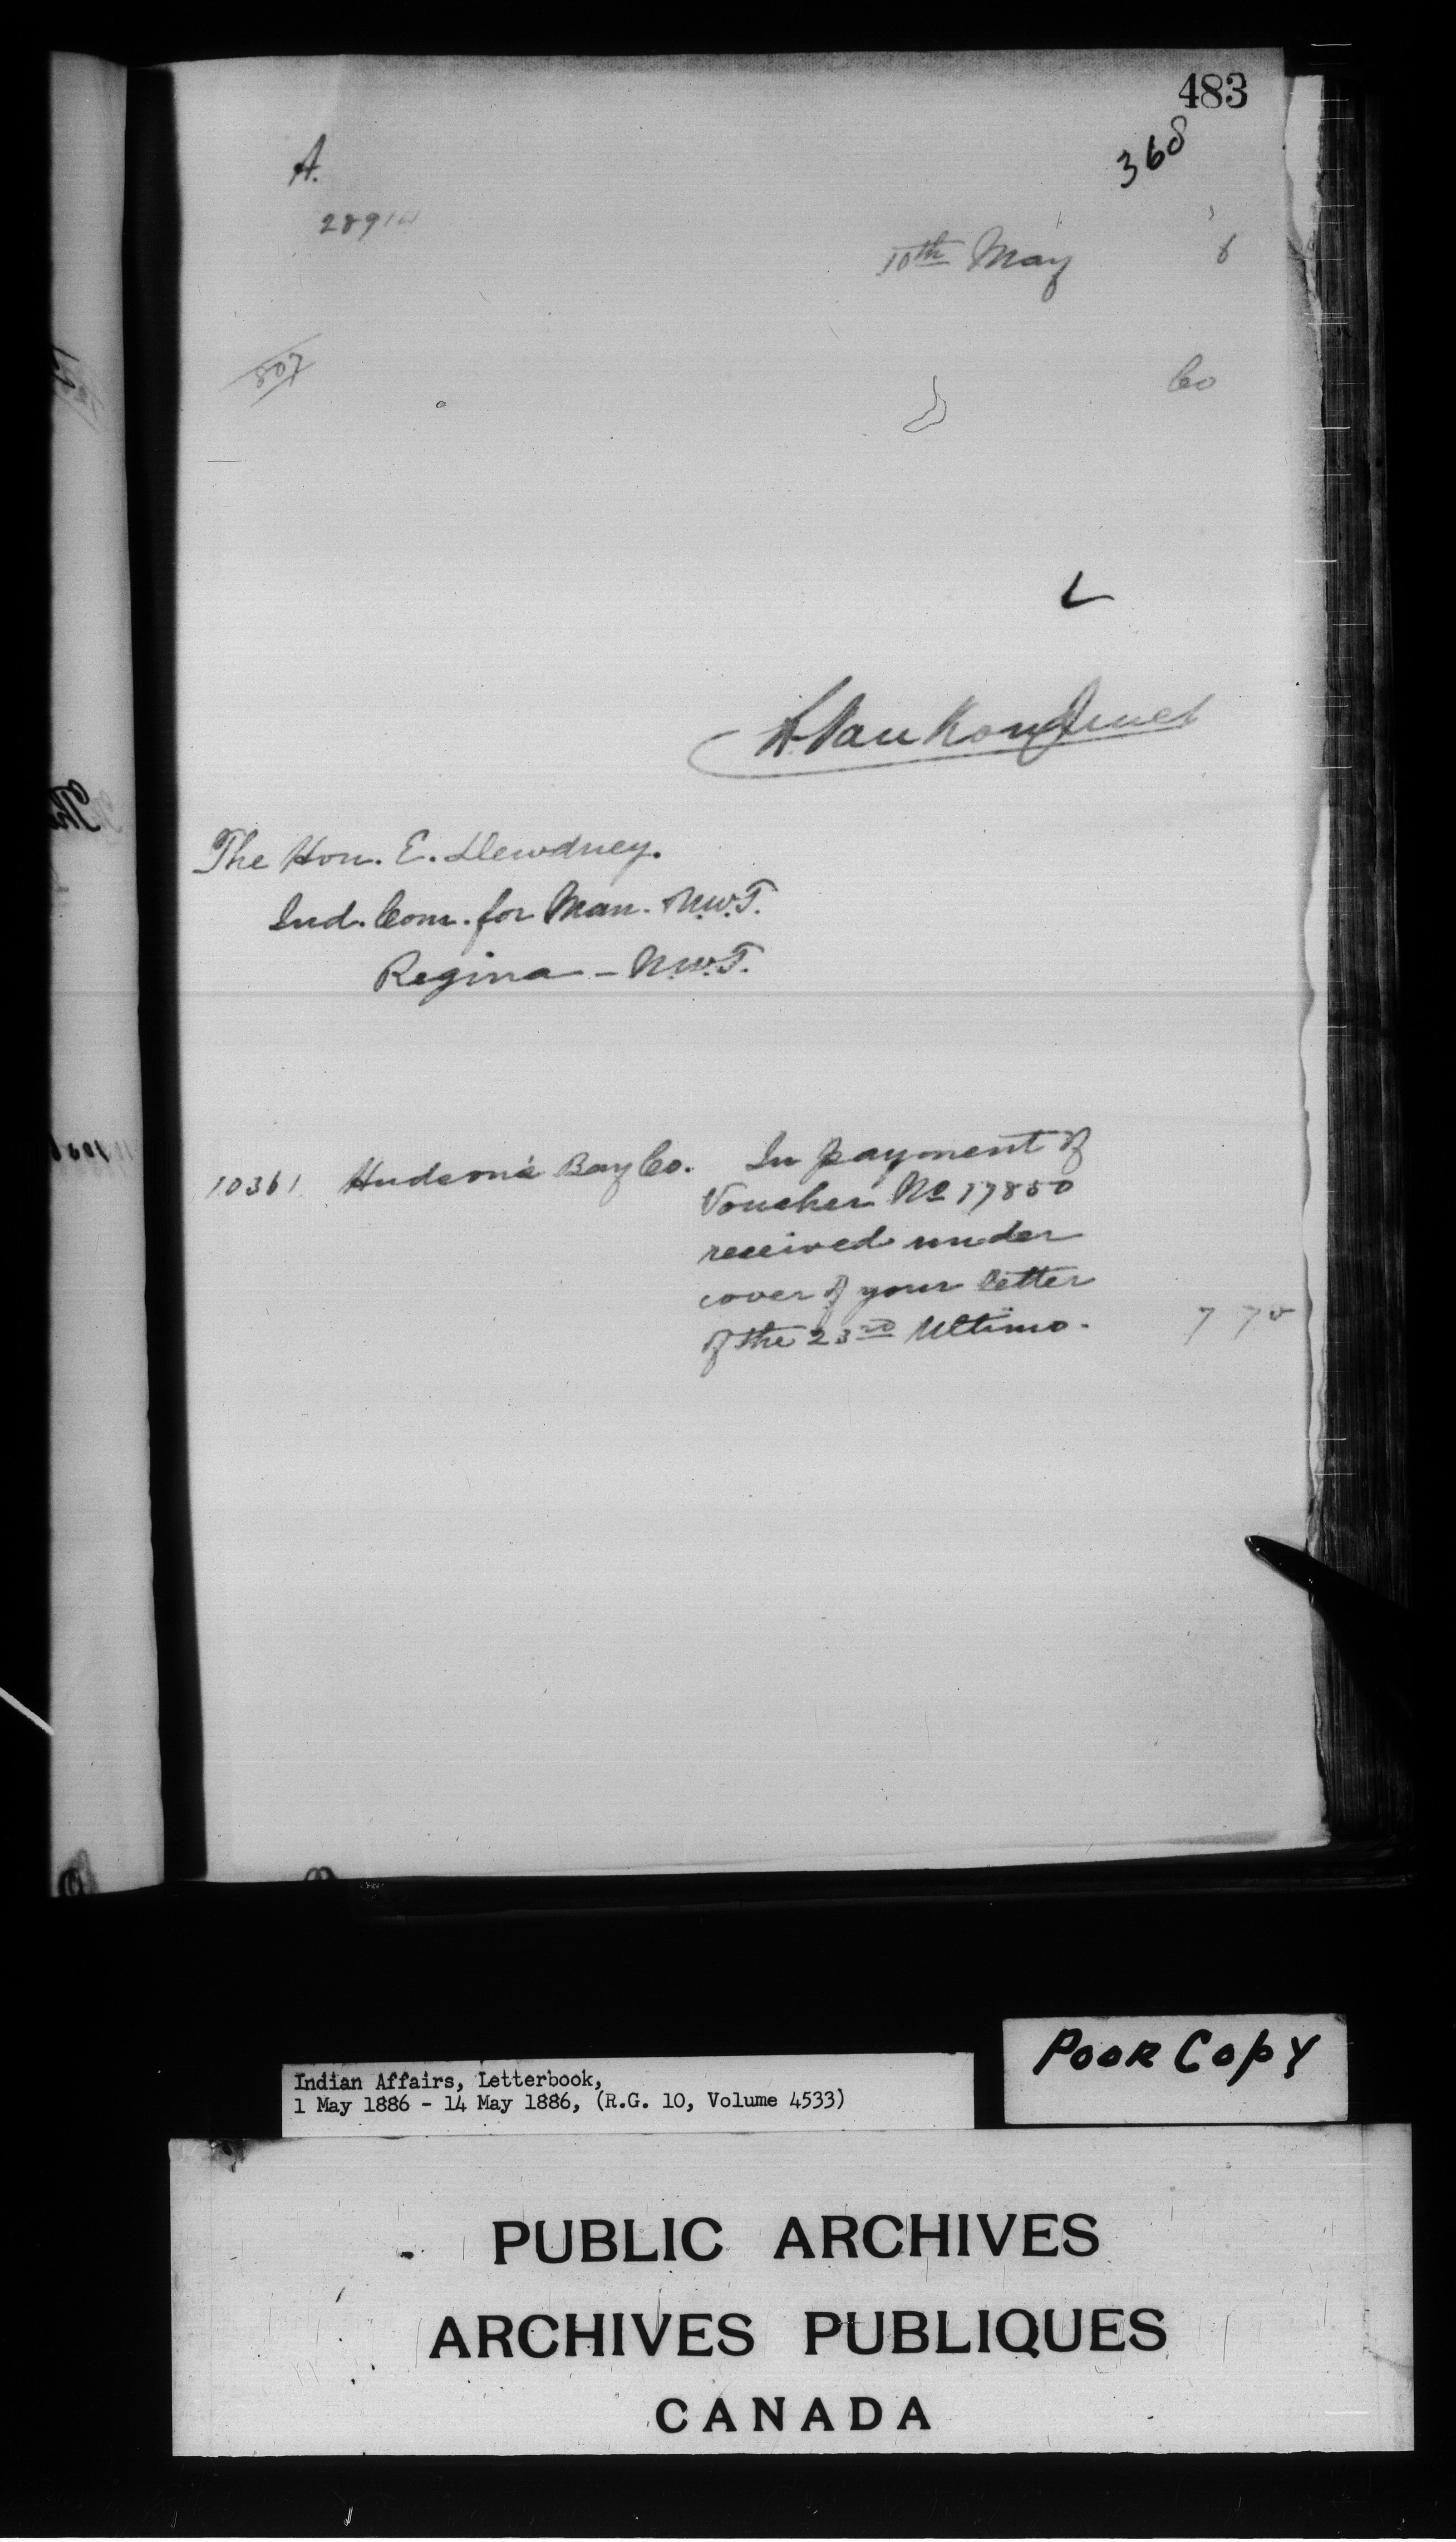 483
368
A.
28914
10th May 6
807
Co
L. VanKoughnet
The Hon. E. Dewdney.
Ind. Com. for Man. N.W.T.
Regina - N.W.T.
10361 Hudson's Bay Co. In payment of
Voucher No 17850
received under
cover of your letter
of the 23rd Ultimo. 7 70
Poor Copy
Indian Affairs, Letterbook,
1 May 1886 - 14 May 1886, (R.G. 10, Volume 4533)
PUBLIC ARCHIVES
ARCHIVES PUBLIQUES
CANADA